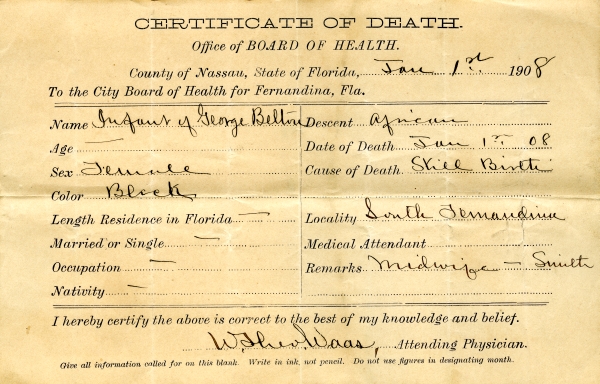 CERTIFICATE OF DEATH.
Office of BOARD OF HEALTH.
County of Nassau, State of Florida, Jan 1st. 1908
To the City Board of Health for Fernandina, Fla.
Name Infant of George Belton
Age —
Sex Female
Color Black
Length Residence in Florida —
Married or Single —
Occupation —
Nativity —
Descent African
Date of Death Jan 1st. 08
Cause of Death Still Birth
Locality South Fernandina
Medical Attendant
Remarks Midwife — Smith
I hereby certify the above is correct to the best of my knowledge and belief.
W. Theo. Waas, Attending Physician.
Give all information called for on this blank. Write in ink, not pencil. Do not use figures in designating month.